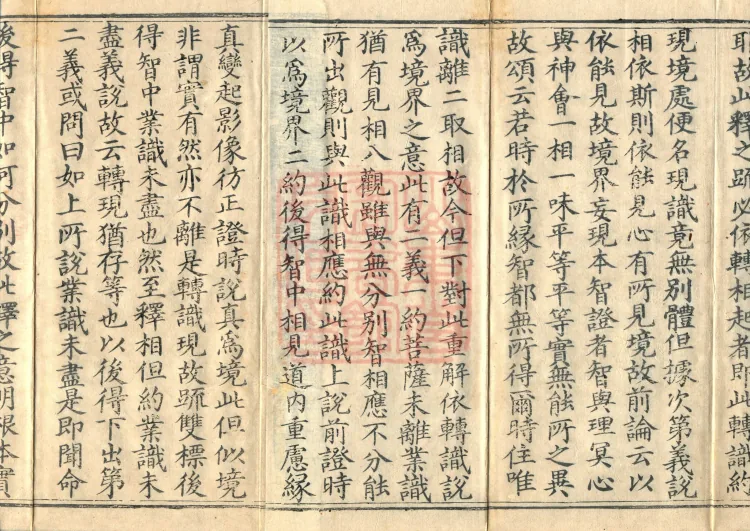 耶故此釋之䟽必依轉相起者即此轉識約
現境處便名現識竟無別體但據次第義說
相依斯則依能見心有所見境故前論云以
依能見故境界妄現本智證者智與理冥心
與神會一相一味平等平等實無能所之異
故頌云若時於所緣智都無所得爾時住唯
識離二取相故今但下對此重解依轉識說
爲境界之意此有二義一約菩薩未離業識
猶有見相入觀雖與無分別智相應不分能
所出觀則與此識相應約此識上說前證時
以爲境界二約後得智中相見道內重慮緣
真變起影像彷正證時說真爲境此但似境
非謂實有然亦不離是轉識現故䟽雙標後
得智中業識未盡也然至釋相但約業識未
盡義說故云轉現猶存等也以後得下出第
二義或問曰如上所說業識未盡是即聞命
後得智中如何分別故此釋之意明根本實